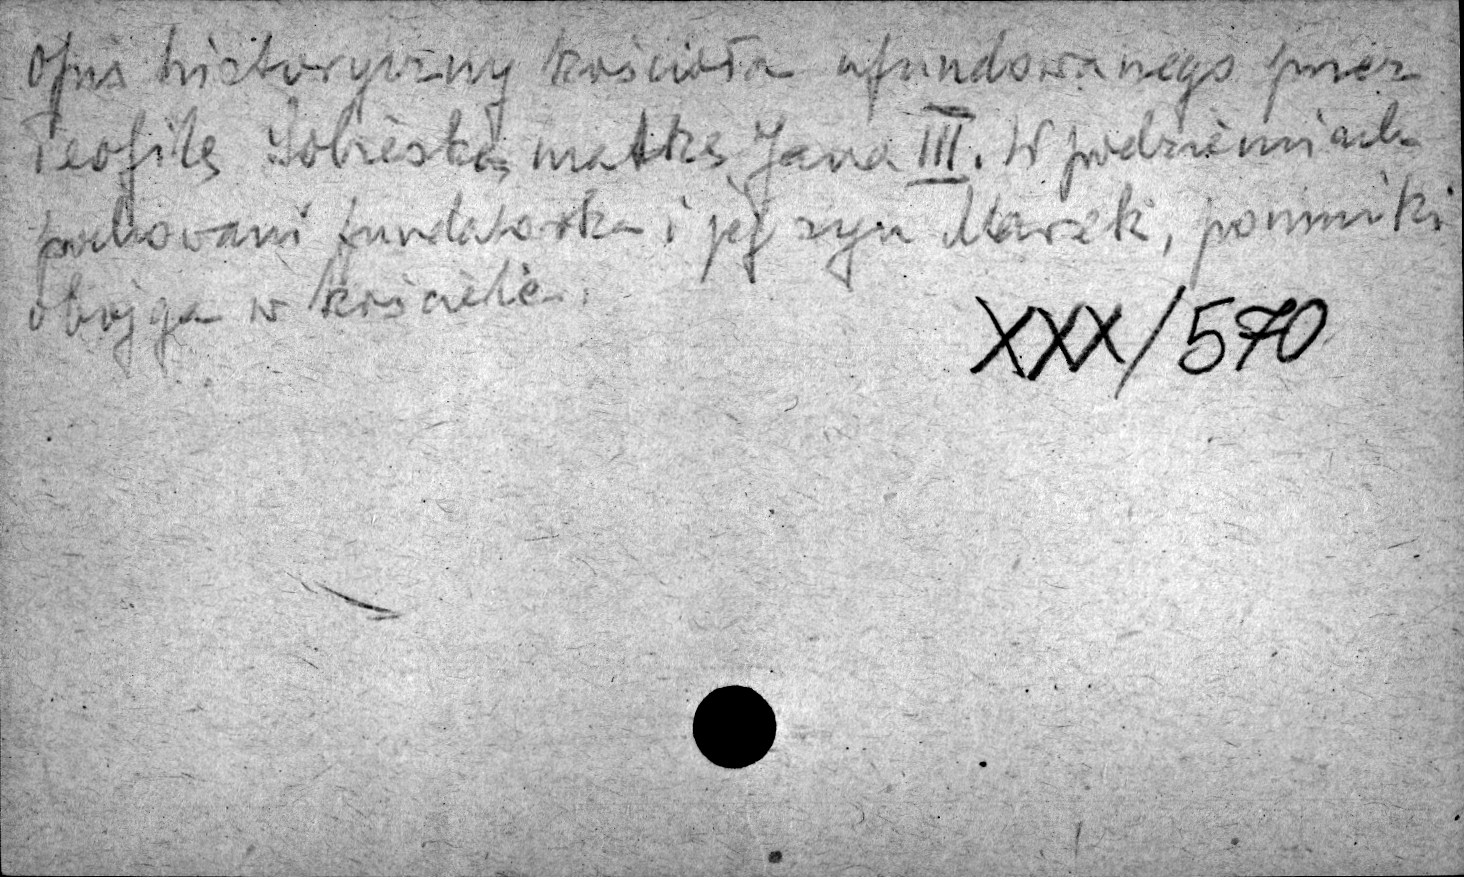 Opis historyczny kościoła ufundowanego przez
Teofilę Sobieską, matkę Jana III. W podziemiach
pochowani fundatorka i jej syn Marek, pomniki
obojga w kościele.
XXX/570